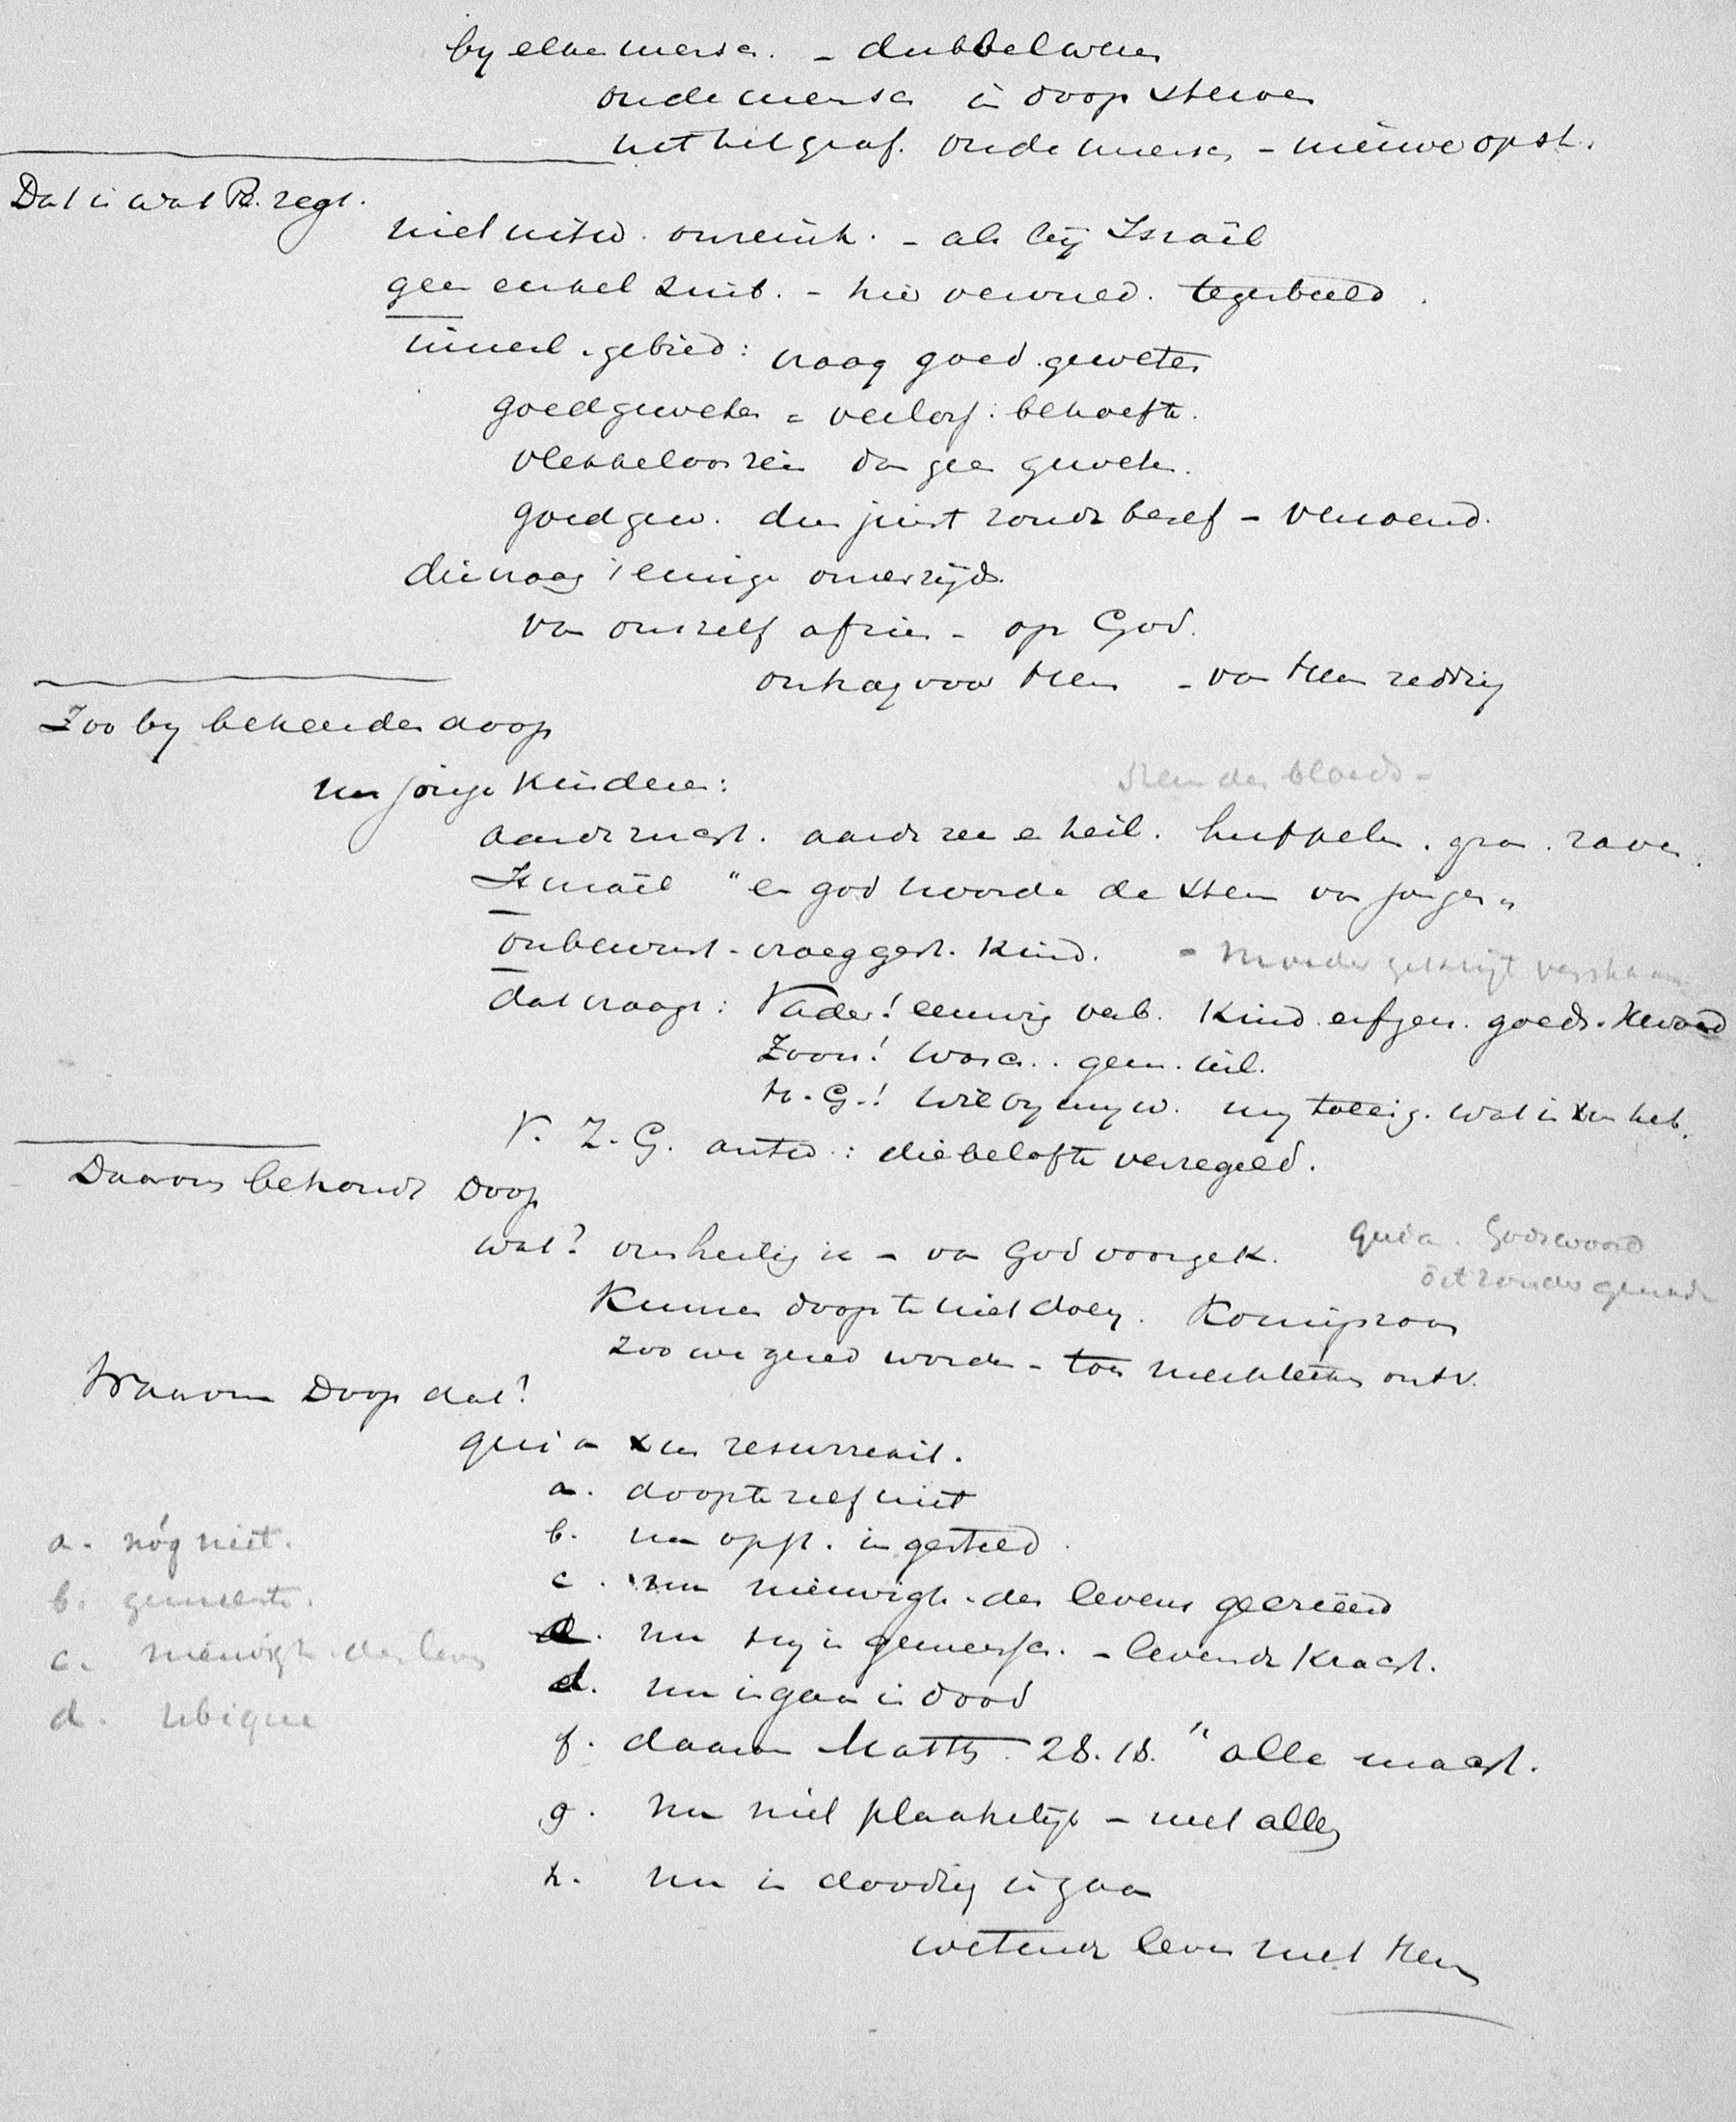 by elke mensch. – dubbel wezen
oude mensch in doop sterven
uit het graf. oude mensch – nieuwe opst.
Dat is wat P. zegt.
niet uitw. onreinh. – als bij Israël
geen enkel zinb. – hier verwez. tegenbeeld.
innerl. gebied: vraag goed geweten
goed geweten = verlos: behoefte.
vlekkeloos rein dan geen geweten.
goed gew. dus juist zonde besef – verzoend.
die vraag 't eenige onzerzijds.
van onszelf afzien – op God.
ontzag voor Hem – van Hem redding
Zoo by bekeerden doop
nu jonge kinderen:
stem des bloeds –
aarde rust. aarde zee e heil. huppelen. gra. raven.
Ismaël "en god hoorde de stem van jongen"
onbewust – vraag gest. kind.
– moeder gekrijt verstaan
dat vraagt: Vader! eeuwig verb. kind erfgen. goeds.
Zoon! wasch.. gem. lid.
H. G.! wil by my w. my toeëig. wat in Xus heb.
V. Z. G. antw.: die belofte verzegeld.
Daarom behoudt Doop
wat? ons heilig is – van God voorgek.
quia. Godswoord
Kunnen doop te niet doen. Koningszoon
niet zonder genade
zoo we gered worden – ten merkteeken ontv.
Waarom Doop dat?
quia Xus resurrexit.
a. doopte zelf niet
b. na opst. ingesteld.
c. nu nieuwigh. des levens gecreëerd
nu Hy in gemeensch. – levende kracht.
d. nu ingaan in dood
f. daarom Matth. 28.18. "alle macht.
g. nu niet plaatselijk – met allen
h. nu in dooding ingaan
wetende leven met Hem
a. nóg niet.
b. gemeente.
c. nieuwigh. des levens
d. ubique